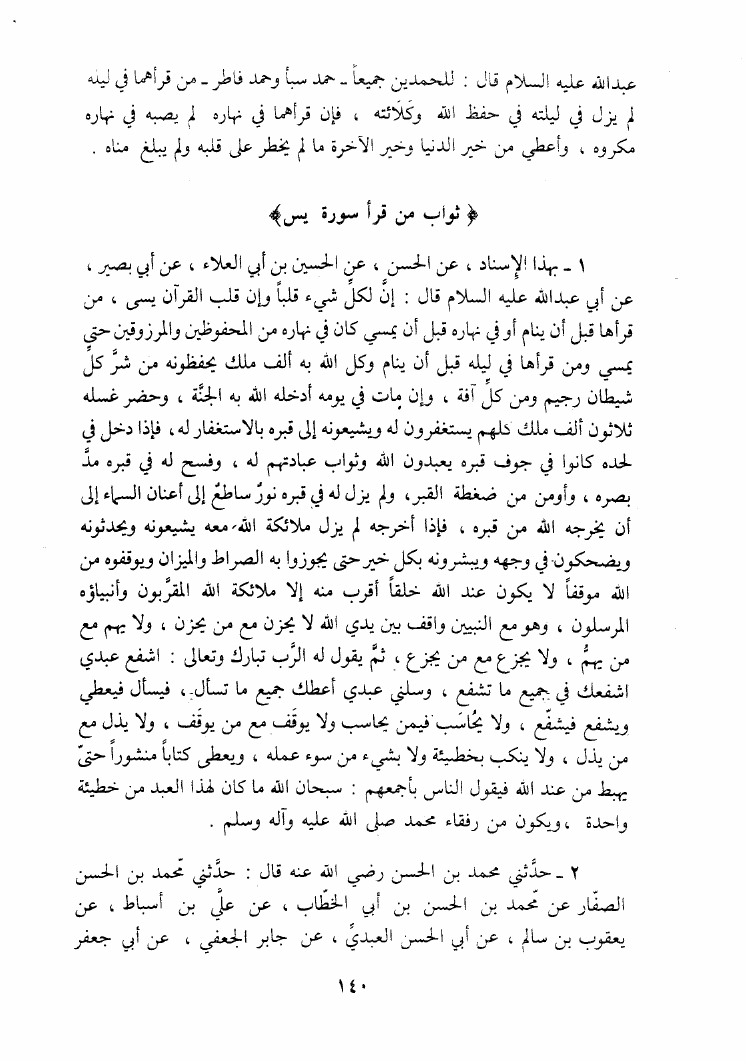 عبدالله عليه السلام قال : للحمدين جميعاً ـ حمد سبأ وحمد فاطر ـ من قرأهما في ليله
لم يزل في ليلته في حفظ الله وكَلَائته ، فإن قرأهما في نهاره لم يصبه في نهاره
مكروه ، وأعطي من خير الدنيا وخير الآخرة ما لم يخطر على قلبه ولم يبلغ مناه .
﴿ ثواب من قرأ سورة يس ﴾
١ ـ بهذا الإسناد ، عن الحسن ، عن الحسين بن أبي العلاء ، عن أبي بصير ،
عن أبي عبدالله عليه السلام قال : إنَّ لكلِّ شيء قلباً وإن قلب القرآن يسى ، من
قرأها قبل أن ينام أو في نهاره قبل أن يمسي كان في نهاره من المحفوظين والمرزوقين حتى
يمسي ومن قرأها في ليله قبل أن ينام وكل الله به ألف ملك يحفظونه من شرِّ كلِّ
شيطان رجيم ومن كلِّ آفة ، وإن مات في يومه أدخله الله به الجنَّة ، وحضر غسله
ثلاثون ألف ملك كلهم يستغفرون له ويشيعونه إلى قبره بالاستغفار له ، فإذا دخل في
لحده كانوا في جوف قبره يعبدون الله وثواب عبادتهم له ، وفسح له في قبره مدَّ
بصره ، وأومن من ضغطة القبر ، ولم يزل له في قبره نورٌ ساطعٌ إلى أعنان السماء إلى
أن يخرجه الله من قبره ، فإذا أخرجه لم يزل ملائكة الله معه يشيعونه ويحدثونه
ويضحكون في وجهه ويبشرونه بكل خير حتى يجوزوا به الصراط والميزان ويوقفوه من
الله موقفاً لا يكون عند الله خلقاً أقرب منه إلا ملائكة الله المقرَّبون وأنبياؤه
المرسلون ، وهو مع النبيين واقف بين يدي الله لا يحزن مع من يحزن ، ولا يهم مع
من يهمُّ ، ولا يجزع مع من يجزع ، ثمَّ يقول له الرَّب تبارك وتعالى : اشفع عبدي
اشفعك في جميع ما تشفع ، وسلني عبدي أعطك جميع ما تسأل ، فيسأل فيعطي
ويشفع فيشفّع ، ولا يُحاسَب فيمن يحاسب ولا يوقَف مع من يوقَف ، ولا يذل مع
من يذل ، ولا ينكب بخطيئة ولا بشيء من سوء عمله ، ويعطى كتاباً منشوراً حتىّ
يهبط من عند الله فيقول الناس بأجمعهم : سبحان الله ما كان لهذا العبد من خطيئة
واحدة ، ويكون من رفقاء محمد صلى الله عليه وآله وسلم .
٢ ـ حدَّثني محمد بن الحسن رضي الله عنه قال : حدَّثني محّمد بن الحسن
الصفّار عن محّمد بن الحسن بن أبي الخطّاب ، عن عليِّ بن أسباط ، عن
يعقوب بن سالم ، عن أبي الحسن العبديِّ ، عن جابر الجعفي ، عن أبي جعفر
١٤٠